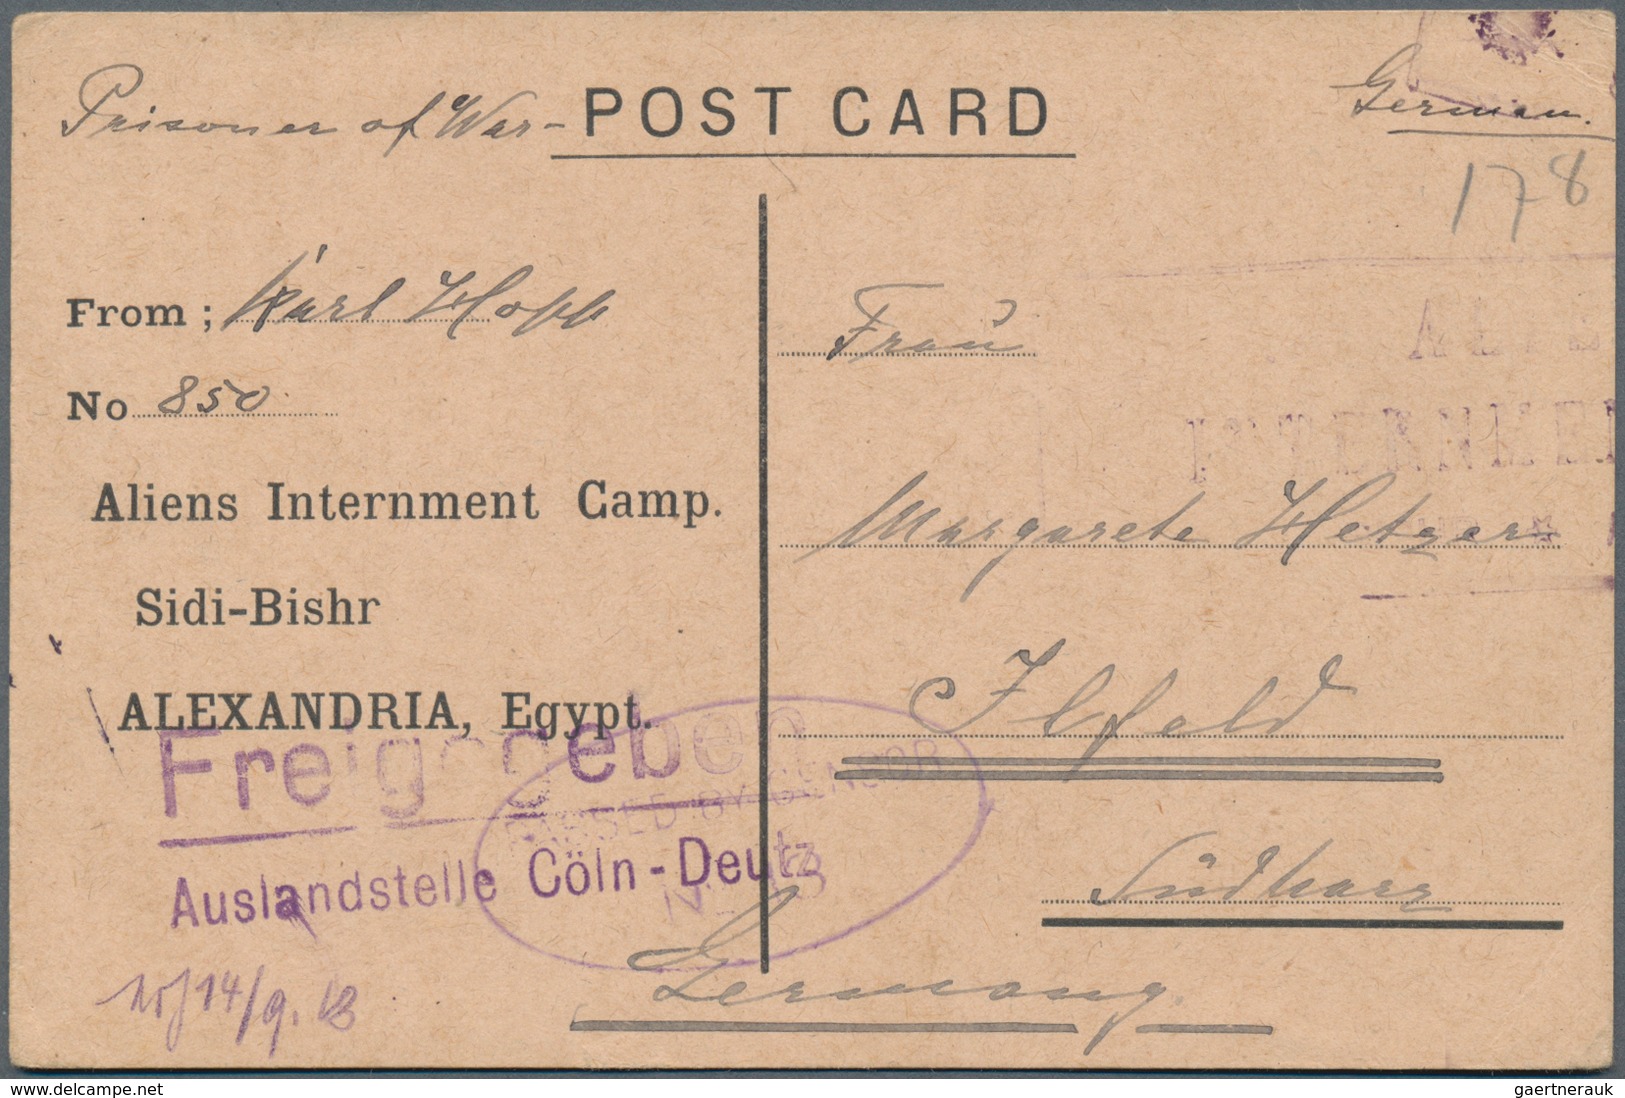 Prisoner of War - POST CARD
German.
178
From ; Karl Hopp
No 850
Aliens Internment Camp.
Sidi-Bishr
ALEXANDRIA, Egypt.
Frau
Margarete Hetzer
Ilfeld
Südharz
Germany.
INTERNMEN
Freigegeben
PASSED BY CENSOR
Auslandstelle Cöln-Deutz
14/9.18
delcampe.net
gaertnerauk